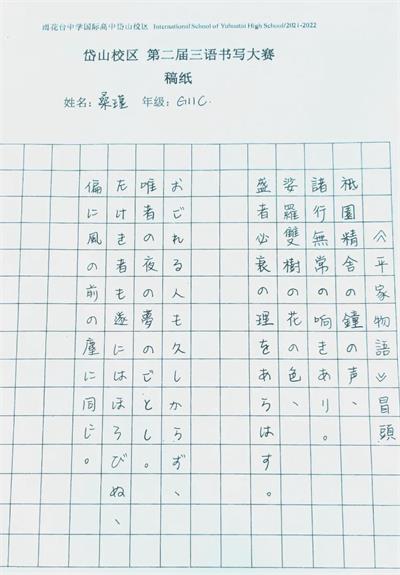 雨花台中学国际高中岱山校区 International School of Yuhuatai High School/2021-2022
岱山校区 第二届三语书写大赛
稿纸
姓名：桑瑾 年级：G11C.
《平家物語》冒頭
祗園精舎の鐘の声、
諸行無常の响きあり。
娑羅雙樹の花の色、
盛者必衰の理をあらはす。
おごれる人も久しからず、
唯者の夜夢のごとし。
たけき者も遂にはほろびぬ、
偏に風の前の塵に同じ。